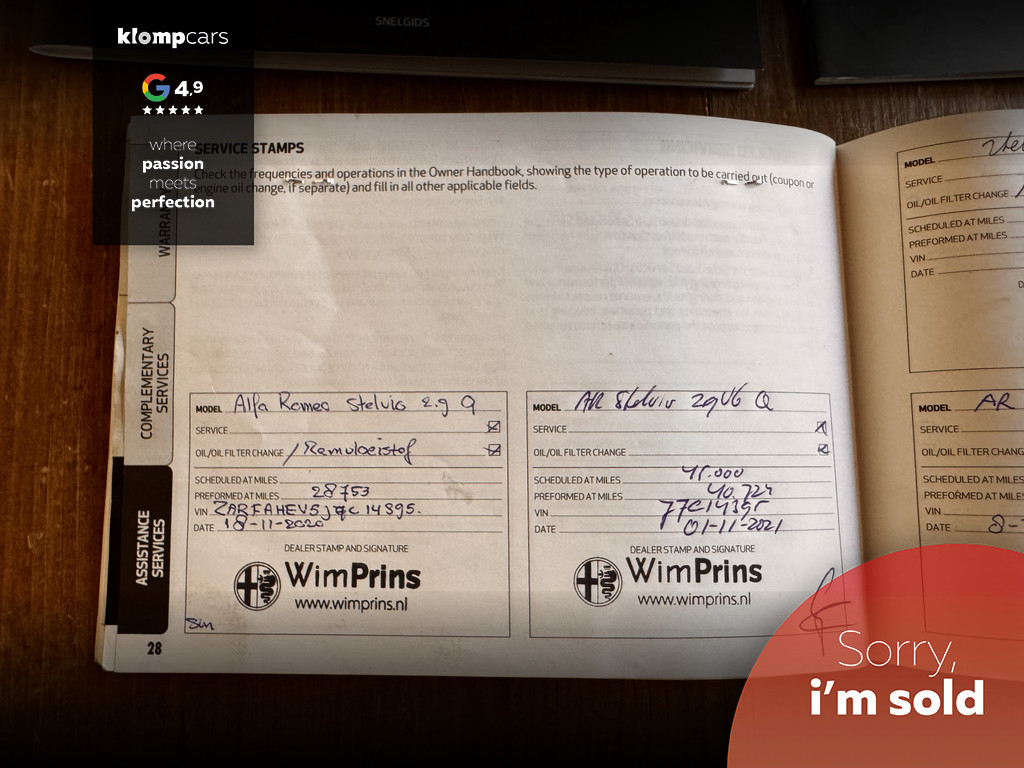 SNELGIDS
klompcars
4,9
where
passion
meets
perfection
SERVICE STAMPS
Check the frequencies and operations in the Owner Handbook, showing the type of operation to be carried out (coupon or
engine oil change, if separate) and fill in all other applicable fields.
WARRANTY
COMPLEMENTARY
SERVICES
ASSISTANCE
SERVICES
MODEL Alfa Romeo Stelvio 2.9 Q
SERVICE
OIL/OIL FILTER CHANGE / Remvloeistof
SCHEDULED AT MILES
PREFORMED AT MILES 28753
VIN
DATE 18-11-2020
DEALER STAMP AND SIGNATURE
WimPrins
www.wimprins.nl
28
MODEL AR Stelvio 29V6 Q
SERVICE
OIL/OIL FILTER CHANGE
SCHEDULED AT MILES 45.000
PREFORMED AT MILES 40.724
VIN 77C14395
DATE 01-11-2021
DEALER STAMP AND SIGNATURE
WimPrins
www.wimprins.nl
MODEL
SERVICE
OIL/OIL FILTER CHANGE
SCHEDULED AT MILES
PREFORMED AT MILES
VIN
DATE
D
MODEL AR
SERVICE
OIL/OIL FILTER
SCHEDULED AT
PREFORMED AT MILES
VIN
DATE 8-
Sorry,
i'm sold